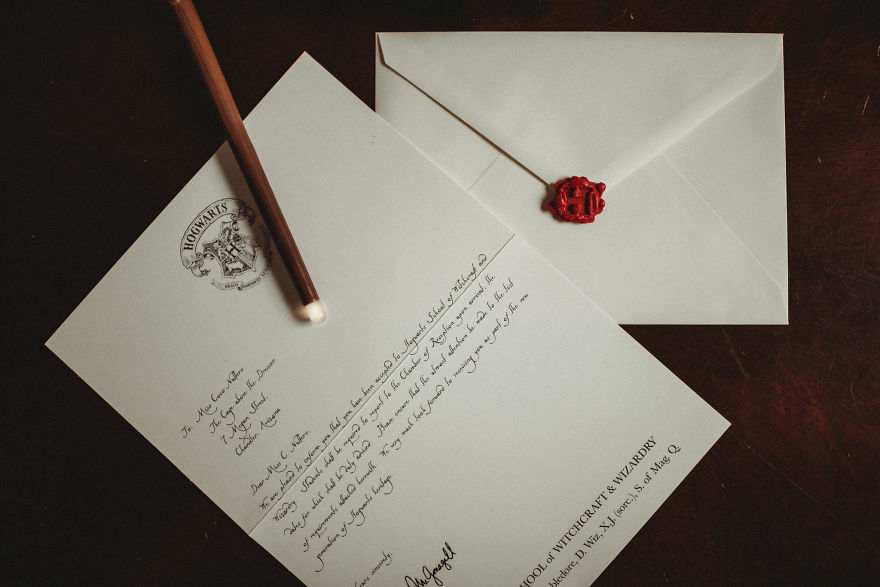 HOGWARTS
H
To: Miss Corra Natters
The Cage above the Dresser
7 Megan Street,
Chandler, Arizona
Dear Miss C Natters,
We are pleased to inform you that you have been accepted to Hogwarts School of Witchcraft and
Wizardry. Students shall be required to report to the Chamber of Reception upon arrival, the
dates for which shall be duly advised. Please ensure that the utmost attention be made to the list
of requirements attached herewith. We very much look forward to receiving you as part of the new
generation of Hogwarts heritage.
sincerely,
McGonagall
HOOL of WITCHCRAFT & WIZARDRY
bledore, D. Wiz, X.J. (sorc.), S. of Mag. Q
H